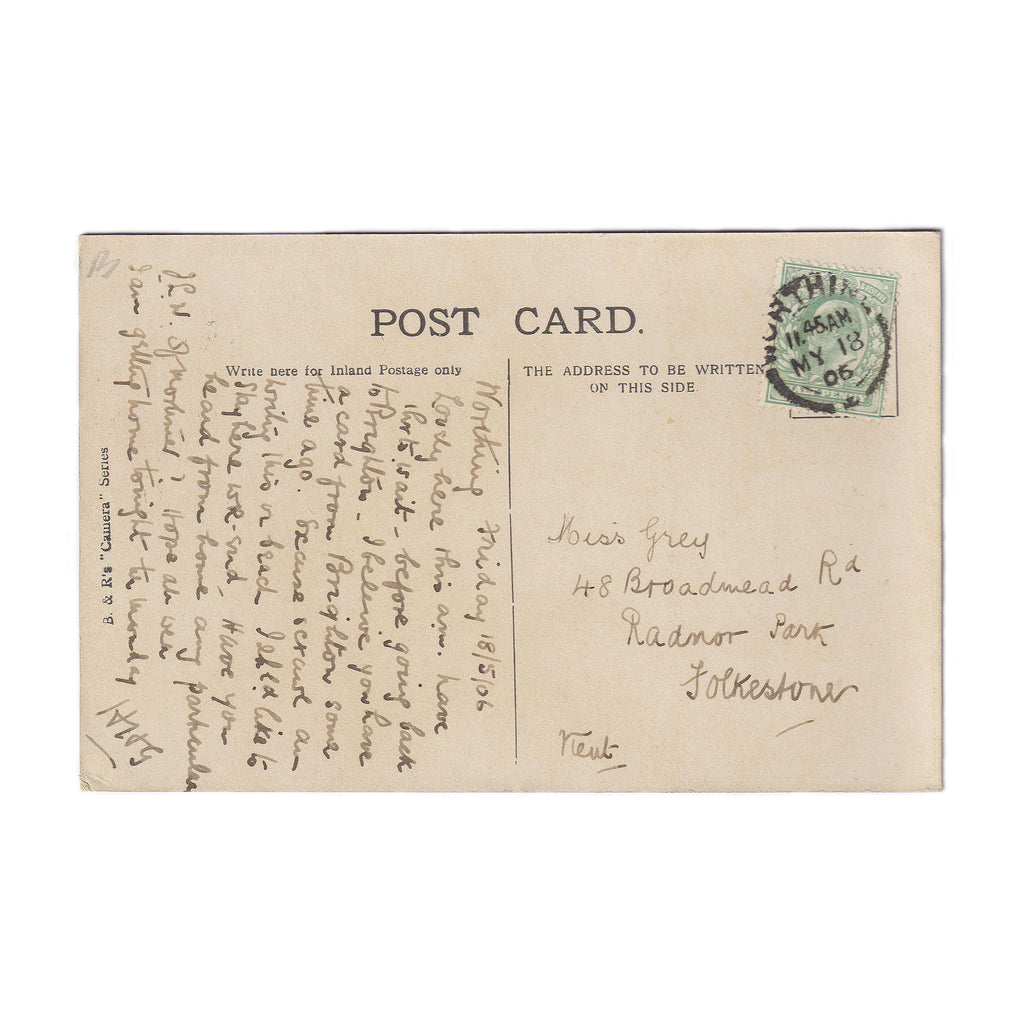 POST CARD.
Write here for Inland Postage only
THE ADDRESS TO BE WRITTEN
ON THIS SIDE.
WORTHING
11.45AM
MY 18
06
Worthing Friday 18/5/06
Lovely here this a.m. have
this wait - before going back
to Brighton - I believe you have
a card from Brighton some
time ago. Excuse scrawl am
writing this on beach I shld like to
stay here wk-end. Have you
heard from home any particular
of mother? Hope all well
I am getting home tonight til Monday
Miss Grey
48 Broadmead Rd
Radnor Park
Folkestone
Kent
B. & R's "Camera" Series